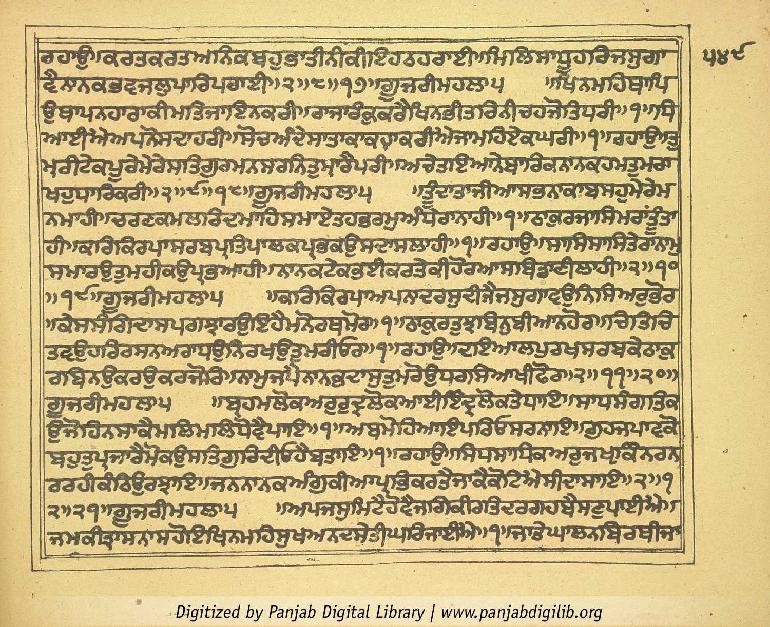 ਰਹਾਉ॥ਕਰਤਕਰਤਅਨਿਕਬਹੁਭਾਤੀਨੀਕੀਇਹਠਹਰਾਈ॥ਮਿਲਿਸਾਧੂਹਰਿਜਸੁਗਾ
੫੪੯
ਵੈਨਾਨਕਭਵਜਲੁਪਾਰਿਪਰਾਈ॥੨॥੮॥੧੭॥ਗੂਜਰੀਮਹਲਾ੫ ॥ਖਿਨਮਹਿਥਾਪਿ
ਉਥਾਪਨਹਾਰਾਕੀਮਤਿਜਾਇਨਕਰੀ॥ਰਾਜਾਰੰਕੁਕਰੈਖਿਨਭੀਤਰਿਨੀਚਹਜੋਤਿਧਰੀ॥੧॥ਧਿ
ਆਈਐਅਪਨੋਸਦਾਹਰੀ॥ਸੋਚਅੰਦੇਸਾਤਾਕਾਕਹਾਕਰੀਐਜਾਮਹਿਏਕਘਰੀ॥੧॥ਰਹਾਉ॥ਤੁ
ਮਰੀਟੇਕਪੂਰੇਮੇਰੇਸਤਿਗੁਰਮਨਸਰਨਿਤੁਮਾਰੈਪਰੀ॥ਅਚੇਤਇਆਨੇਬਾਰਿਕਨਾਨਕਹਮਤੁਮਰਾ
ਖਹੁਧਾਰਿਕਰੀ॥੨॥੯॥੧੮॥ਗੂਜਰੀਮਹਲਾ੫ ॥ਤੂੰਦਾਤਾਜੀਆਸਭਨਾਕਾਬਸਹੁਮੇਰੇਮ
ਨਮਾਹੀ॥ਚਰਣਕਮਲਰਿਦਮਾਹਿਸਮਾਏਤਹਭਰਮੁਅੰਧੇਰਾਨਾਹੀ॥੧॥ਠਾਕੁਰਜਾਸਿਮਰਾਤੂੰਤਾ
ਹੀ॥ਕਰਿਕਿਰਪਾਸਰਬਪ੍ਰਤਿਪਾਲਕਪ੍ਰਭਕਉਸਦਾਸਲਾਹੀ॥੧॥ਰਹਾਉ॥ਸਾਸਿਸਾਸਿਤੇਰਾਨਾਮੁ
ਸਮਾਰਉਤੁਮਹੀਕਉਪ੍ਰਭਆਹੀ॥ਨਾਨਕਟੇਕਭਈਕਰਤੇਕੀਹੋਰਆਸਬਿਡਾਣੀਲਾਹੀ॥੨॥੧੦
॥੧੯॥ਗੂਜਰੀਮਹਲਾ੫ ॥ਕਰਿਕਿਰਪਾਅਪਨਾਦਰਸੁਦੀਜੈਜਸੁਗਾਵਉਨਿਸਿਅਰੁਭੋਰ
॥ਕੇਸਸੰਗਿਦਾਸਪਗਝਾਰਉਇਹੈਮਨੋਰਥਮੋਰ॥੧॥ਠਾਕੁਰਤੁਝਬਿਨੁਬੀਆਨਹੋਰ॥ਚਿਤਿਚਿ
ਤਵਉਹਰਿਰਸਨਅਰਾਧਉਨਿਰਖਉਤੁਮਰੀਓਰ॥੧॥ਰਹਾਉ॥ਦਇਆਲਪੁਰਖਸਰਬਕੇਠਾਕੁ
ਰਬਿਨਉਕਰਉਕਰਜੋਰਿ॥ਨਾਮੁਜਪੈਨਾਨਕੁਦਾਸੁਤੁਮਰੋਉਧਰਸਿਆਖੀਫੋਰ॥੨॥੧੧॥੨੦॥
ਗੂਜਰੀਮਹਲਾ੫ ॥ਬ੍ਰਹਮਲੋਕਅਰੁਰੁਦ੍ਰਲੋਕਆਈਇੰਦ੍ਰਲੋਕਤੇਧਾਇ॥ਸਾਧਸੰਗਤਿਕ
ਉਜੋਹਿਨਸਾਕੈਮਲਿਮਲਿਧੋਵੈਪਾਇ॥੧॥ਅਬਮੋਹਿਆਇਪਰਿਓਸਰਨਾਇ॥ਗੁਹਜਪਾਵਕੋ
ਬਹੁਤੁਪ੍ਰਜਾਰੈਮੋਕਉਸਤਿਗੁਰਿਦੀਓਹੈਬਤਾਇ॥੧॥ਰਹਾਉ॥ਸਿਧਸਾਧਿਕਅਰੁਜਖ੍ਯਕਿੰਨਰਨ
ਰਰਹੀਕੰਠਿਉਰਝਾਇ॥ਜਨਨਾਨਕਅੰਗੁਕੀਆਪ੍ਰਭਿਕਰਤੈਜਾਕੈਕੋਟਿਐਸੀਦਾਸਾਇ॥੨॥੧
੨॥੨੧॥ਗੂਜਰੀਮਹਲਾ੫ ॥ਅਪਜਸੁਮਿਟੈਹੋਵੈਜਗਿਕੀਰਤਿਦਰਗਹਬੈਸਣੁਪਾਈਐ॥
ਜਮਕੀਤ੍ਰਾਸਨਾਸਹੋਇਖਿਨਮਹਿਸੁਖਅਨਦਸੇਤੀਘਰਿਜਾਈਐ॥੧॥ਜਾਤੇਘਾਲਨਬਿਰਥੀਜਾ
Digitized by Panjab Digital Library | www.panjabdigilib.org